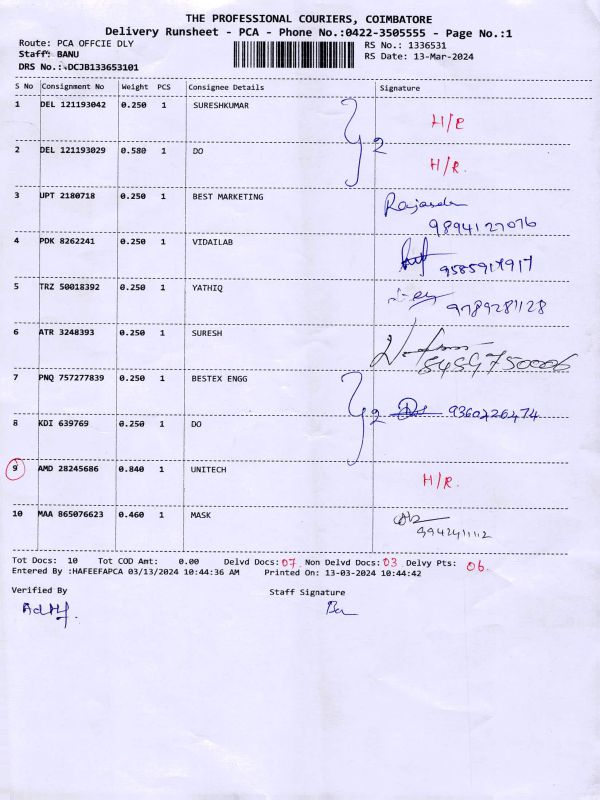 THE PROFESSIONAL COURIERS, COIMBATORE
Delivery Runsheet - PCA - Phone No.:0422-3505555 - Page No.:1
Route: PCA OFFCIE DLY RS No.: 1336531
Staff: BANU RS Date: 13-Mar-2024
DRS No.:-DCJB133653101
S No Consignment No Weight PCS Consignee Details Signature
1 DEL 121193042 0.250 1 SURESHKUMAR H/R
2 DEL 121193029 0.580 1 DO 2 H/R.
3 UPT 2180718 0.250 1 BEST MARKETING
9894127076
4 PDK 8262241 0.250 1 VIDAILAB
9585917917
5 TRZ 50018392 0.250 1 YATHIQ
9789281128
6 ATR 3248393 0.250 1 SURESH
8489750006
7 PNQ 757277839 0.250 1 BESTEX ENGG
2 9360226474
8 KDI 639769 0.250 1 DO
9 AMD 28245686 0.840 1 UNITECH H/R.
10 MAA 865076623 0.460 1 MASK
9942411112
Tot Docs: 10 Tot COD Amt: 0.00 Delvd Docs: 07. Non Delvd Docs: 03 Delvy Pts: 06.
Entered By :HAFEEFAPCA 03/13/2024 10:44:36 AM Printed On: 13-03-2024 10:44:42
Verified By Staff Signature